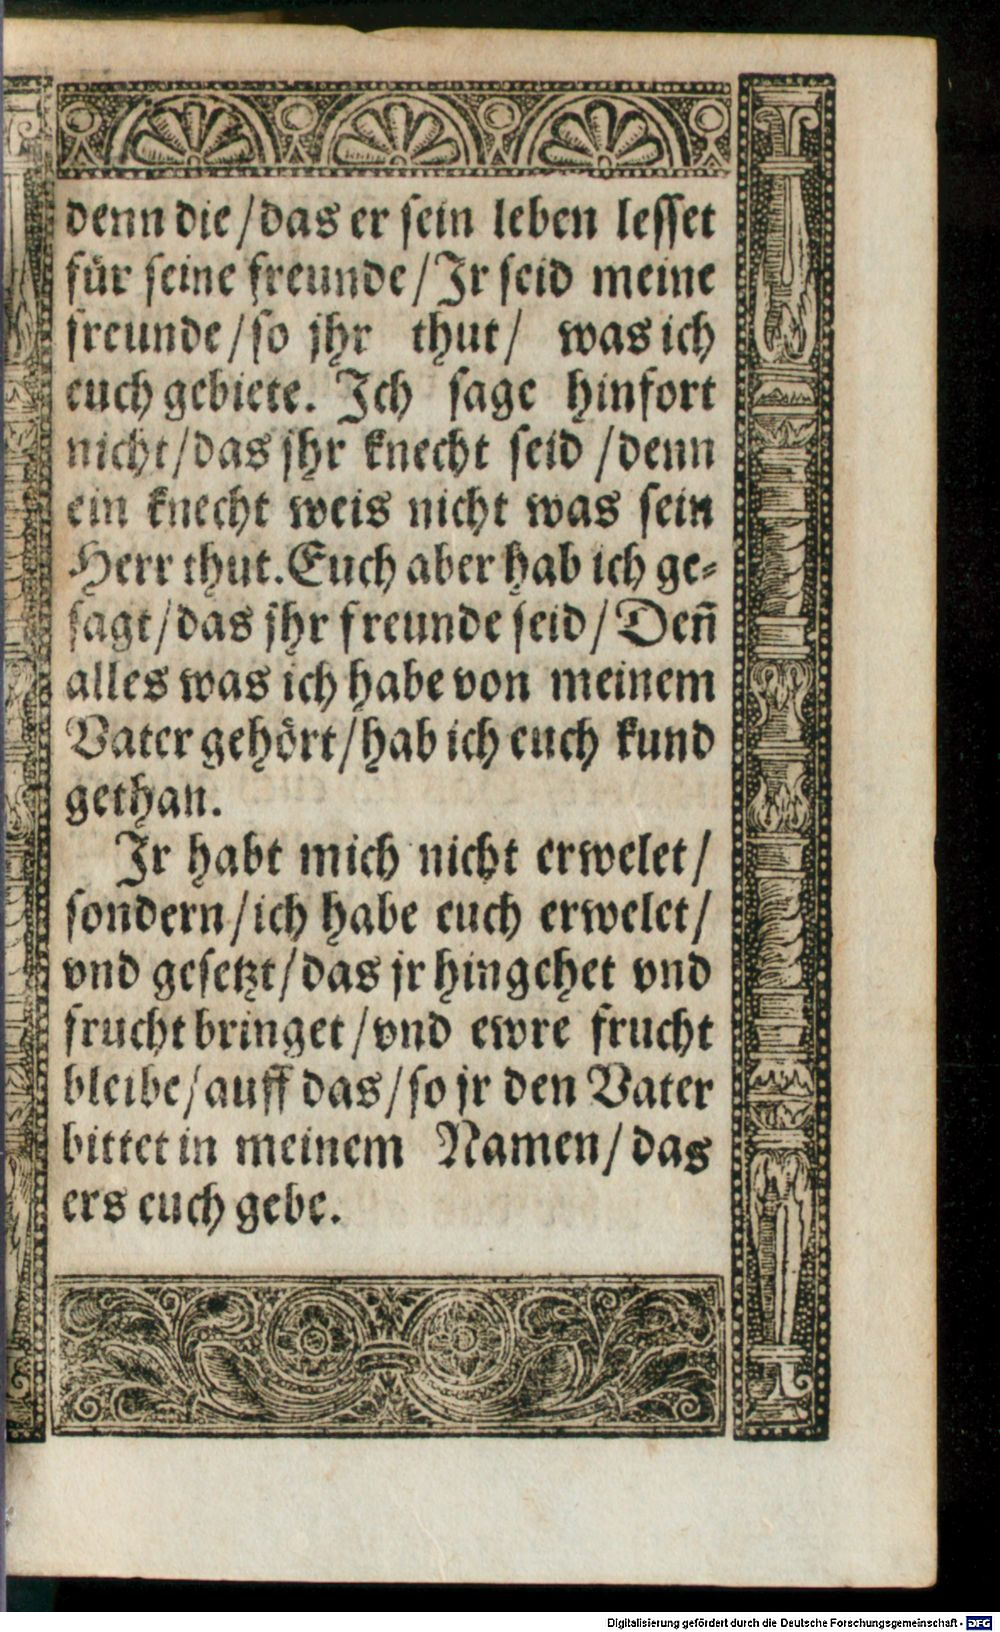 denn die/das er sein leben lesset
für seine freunde/Jr seid meine
freunde/so jhr thut/ was ich
euch gebiete. Jch sage hinfort
nicht/das jhr knecht seid /denn
ein knecht weis nicht was sein
Herr thut. Euch aber hab ich ge-
sagt/das jhr freunde seid/Deñ
alles was ich habe von meinem
Vater gehört/hab ich euch kund
gethan.
Jr habt mich nicht erwelet/
sondern/ich habe euch erwelet/
vnd gesetzt/das jr hingehet vnd
frucht bringet/vnd ewre frucht
bleibe/auff das/so jr den Vater
bittet in meinem Namen/das
ers euch gebe.
Digitalisierung gefördert durch die Deutsche Forschungsgemeinschaft - DFG